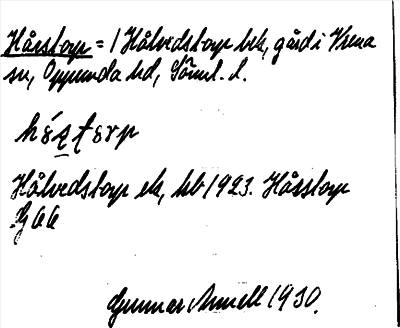 Hårstorp = / Hålvedstorp bek, gård i Vrena
sn, Oppunda hd, Söml. l.
Hålvedstorp ek, kb 1923. Hårstorp
G ö a
Gunnar Amell 1930.